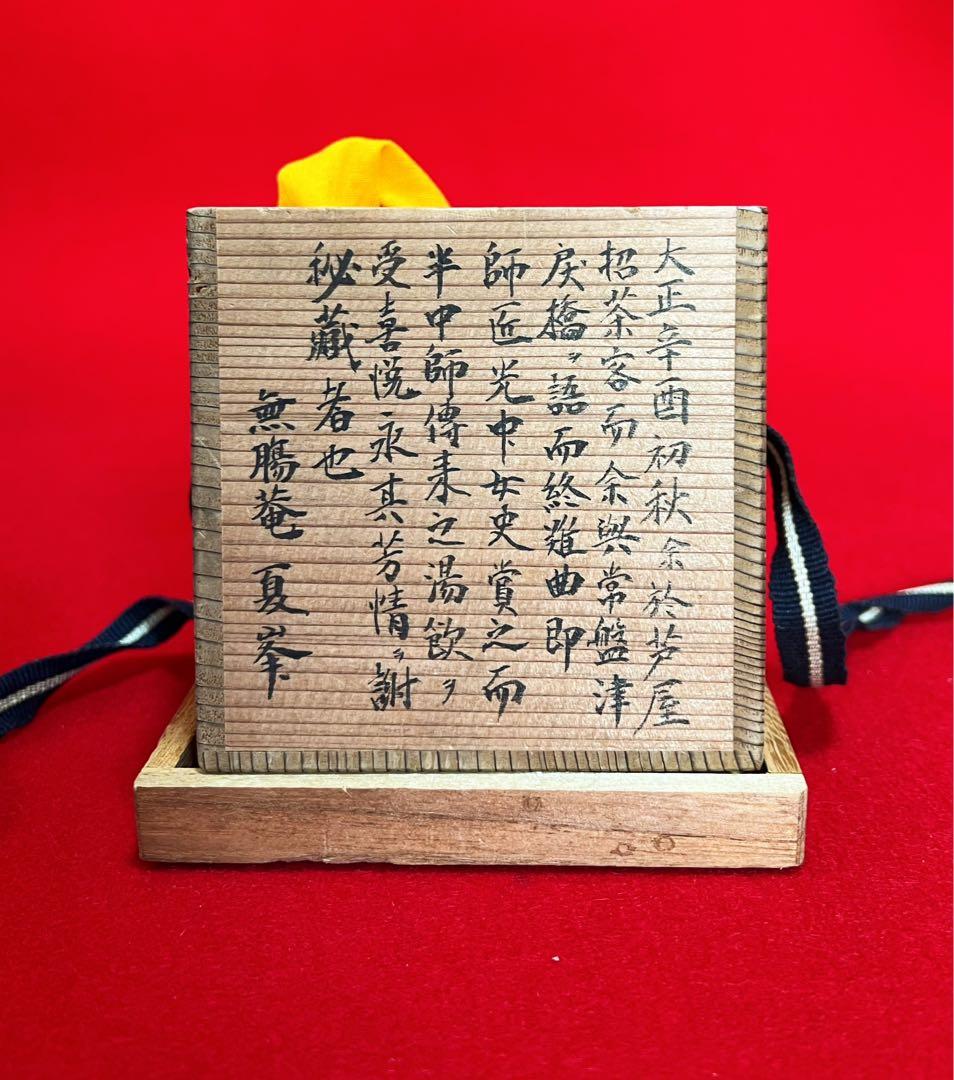 大正辛酉初秋余於芦屋
招茶客而余與常盤津
戻橋ヲ語而終難曲即
師匠光中女史賞之而
半中師傳来之湯飲ヲ
受喜悦永其芳情ヲ謝
秘藏者也
無腸菴 夏峯